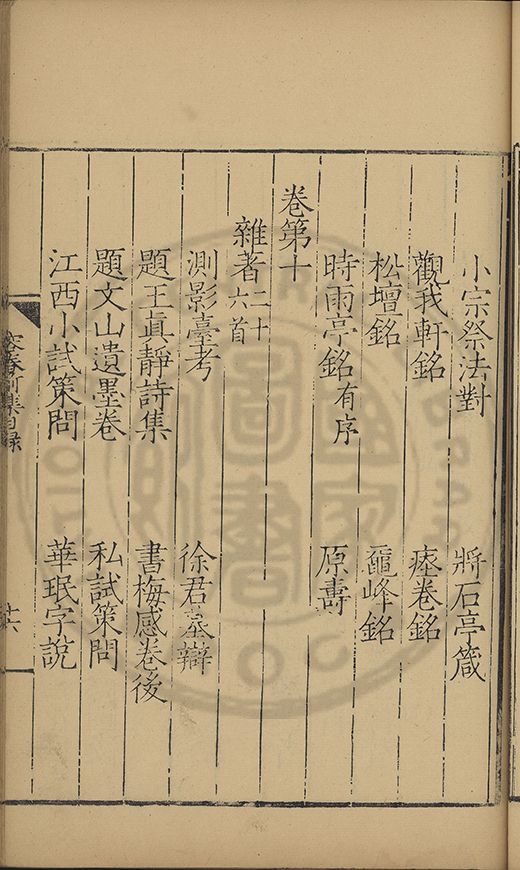 小宗祭法對 將石亭箴
觀我軒銘 瘞卷銘
松壇銘 龜峰銘
時雨亭銘有序 原壽
卷第十
雜著二十六首
測影臺考 徐君墓辯
題王眞靜詩集 書梅感卷後
題文山遺墨卷 私試策問
江西小試策問 華珉字說
集目錄
十六